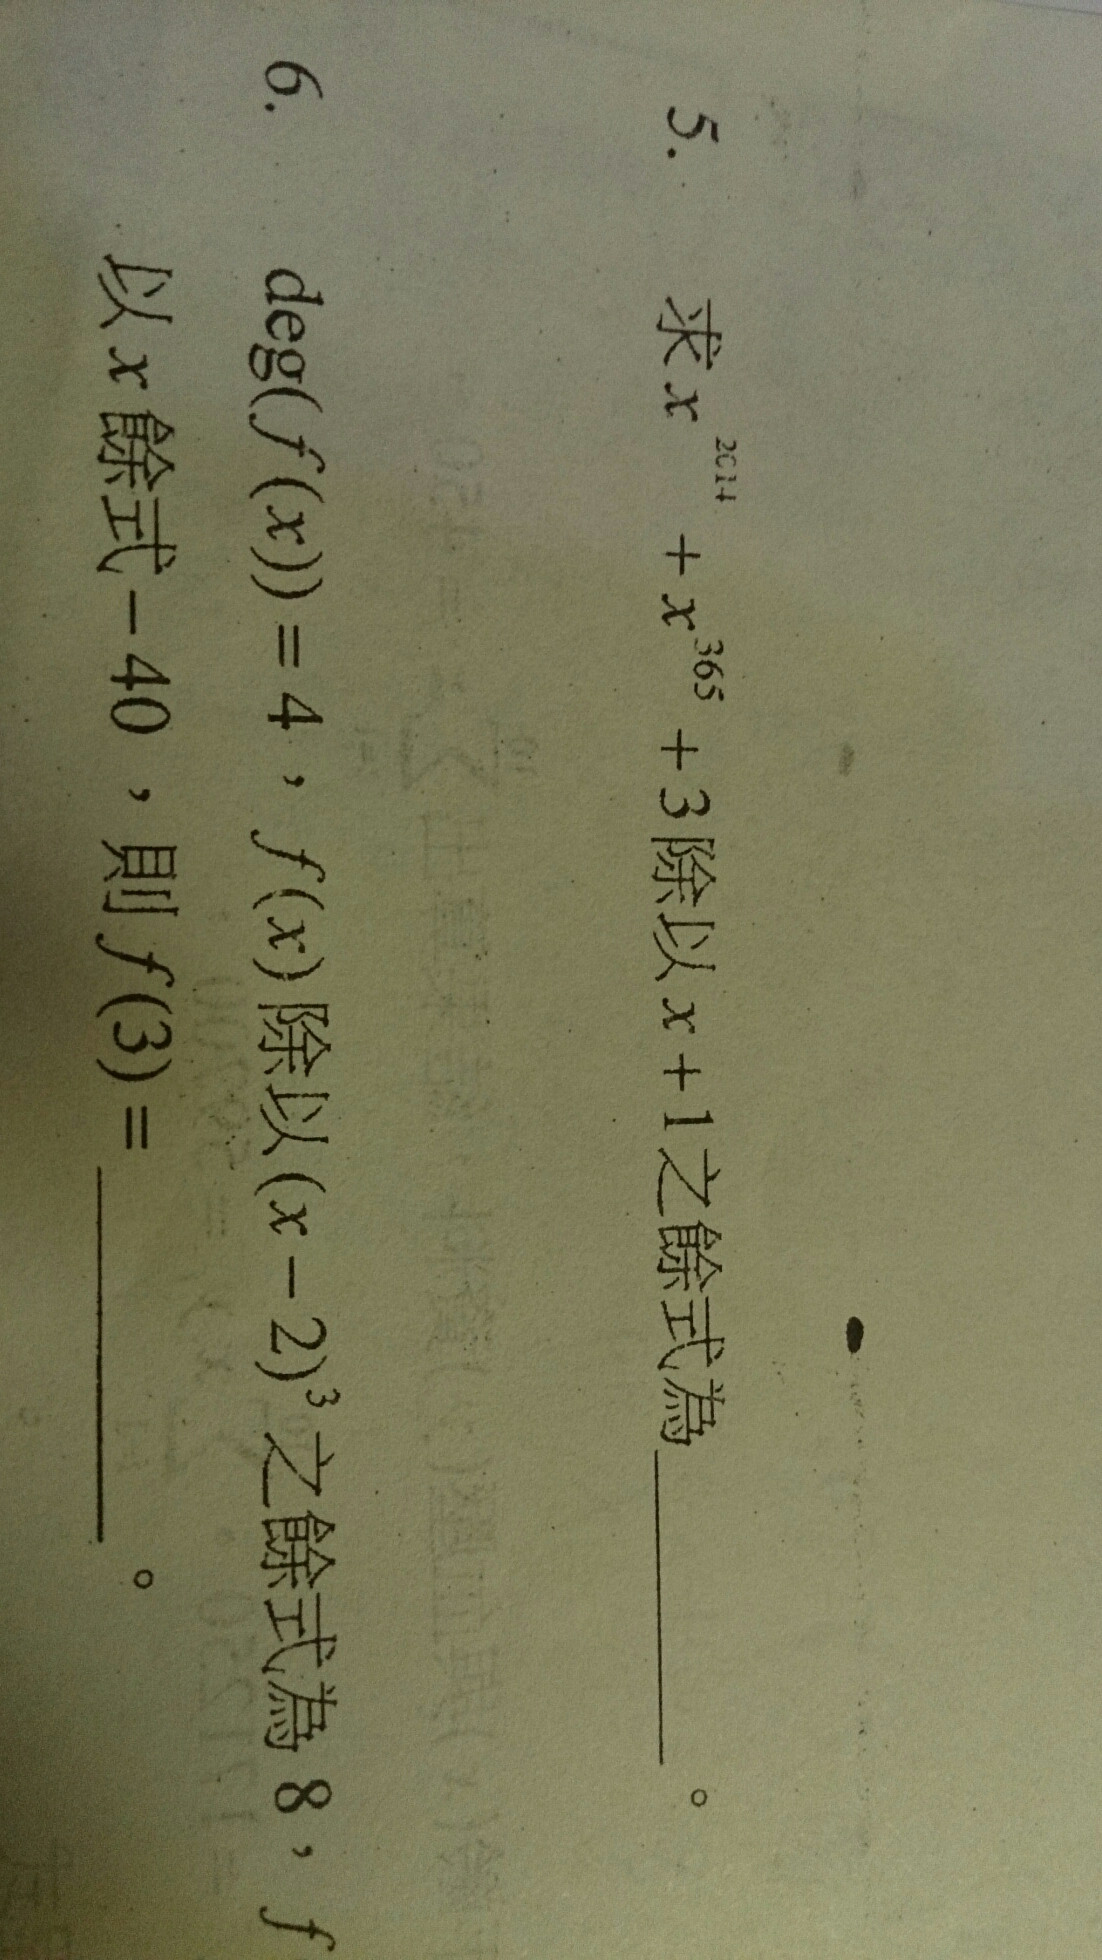 5. 求x^2014 + x^365 + 3除以x+1之餘式為______。
6. deg(f(x)) = 4，f(x)除以(x-2)^3之餘式為8，f
以x餘式-40，則f(3) = ______。